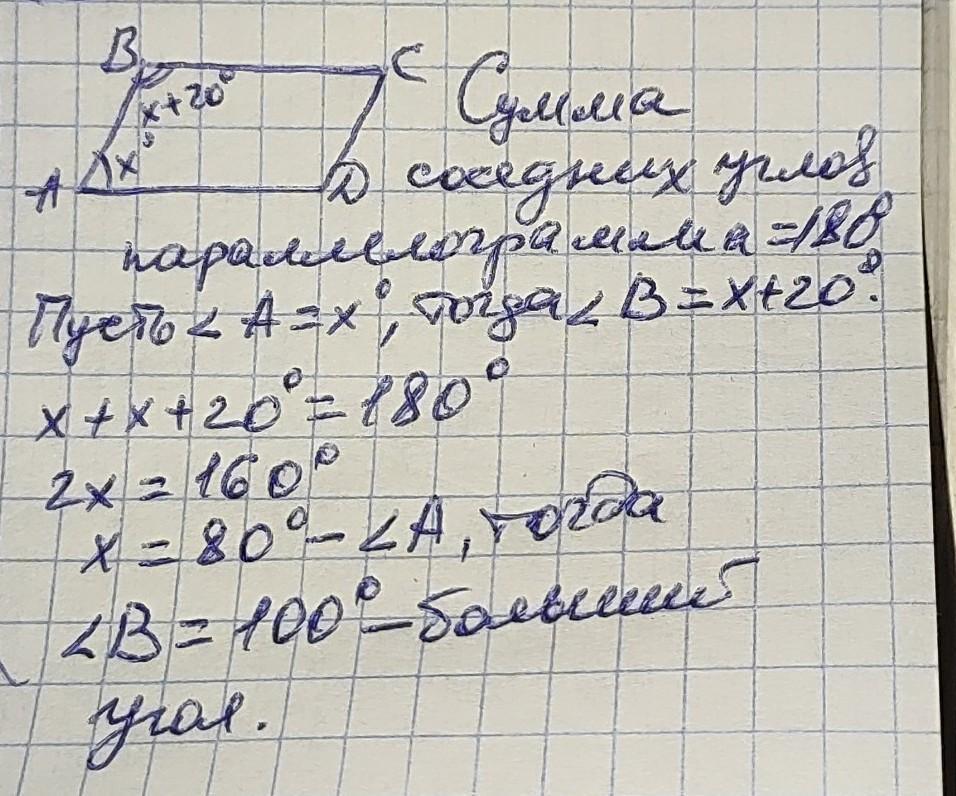 B C
x+20°
x°
A D
Сумма
соседних углов
параллелограмма =180°
Пусть ∠A=x°, тогда ∠B=x+20°.
x+x+20°=180°
2x=160°
x=80°–∠A, тогда
∠B=100°–больший
угол.